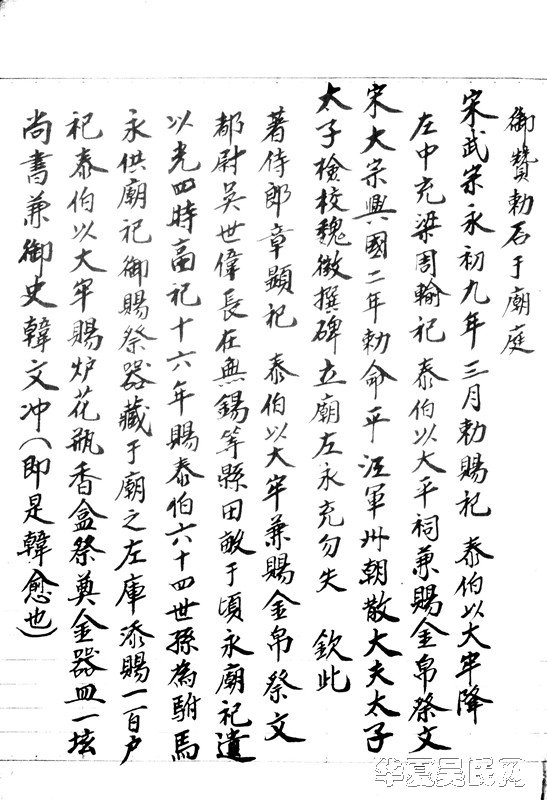 御贊勅石于廟庭
宋武宗永初九年三月勅賜祀 泰伯以大牢降
左中充梁周輸祀 泰伯以大平祠兼賜金帛祭文
宋大宗興國二年勅命平江軍州朝散大夫太子
太子檢校魏徵撰碑立廟左永充勿失 欽此
著侍郎章顯祀 泰伯以大牢兼賜金帛祭文
都尉吴世偉長在無錫等縣田敵于頃永廟祀遺
以光四時亯祀十六年賜泰伯六十四世孫為駙馬
永供廟祀御賜祭器藏于廟之左庫添賜一百户
祀泰伯以大牢賜炉花瓶香盒祭奠金器皿一坛
尚書兼御史韓文冲(即是韓愈也)
华夏吴氏网